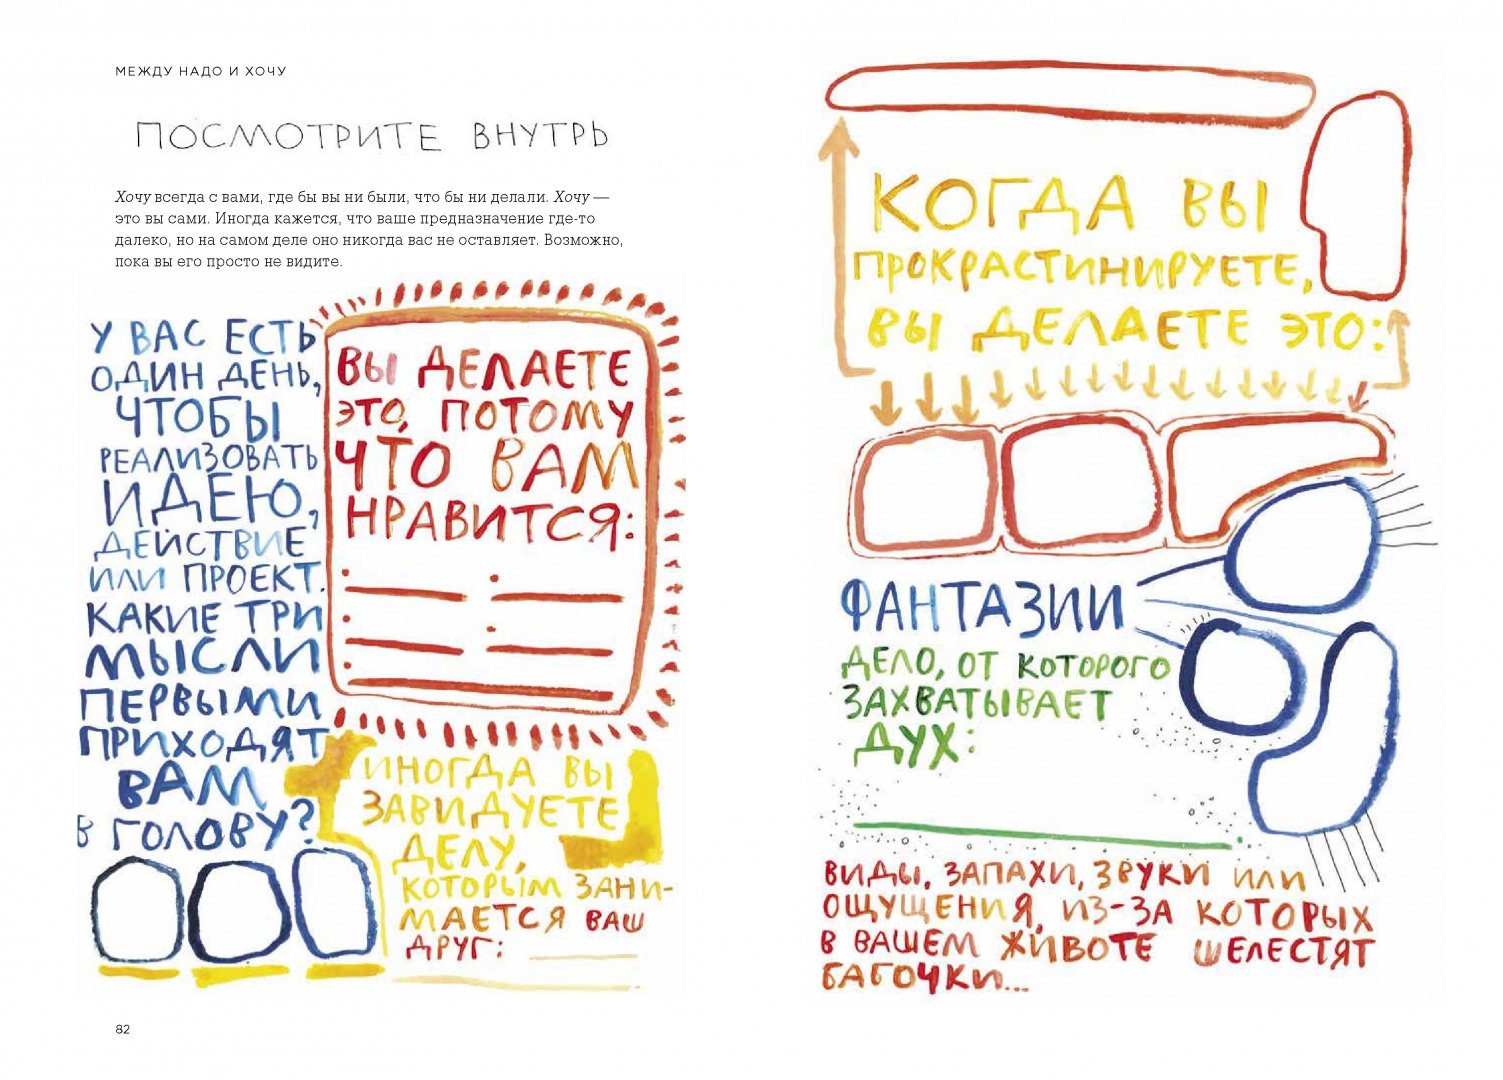 МЕЖДУ НАДО И ХОЧУ
ПОСМОТРИТЕ ВНУТРЬ
Хочу всегда с вами, где бы вы ни были, что бы ни делали. Хочу —
это вы сами. Иногда кажется, что ваше предназначение где-то
далеко, но на самом деле оно никогда вас не оставляет. Возможно,
пока вы его просто не видите.
У ВАС ЕСТЬ
ОДИН ДЕНЬ,
ЧТОБЫ
РЕАЛИЗОВАТЬ
ИДЕЮ,
ДЕЙСТВИЕ
ИЛИ ПРОЕКТ.
КАКИЕ ТРИ
МЫСЛИ
ПЕРВЫМИ
ПРИХОДЯТ
ВАМ
В ГОЛОВУ?
ВЫ ДЕЛАЕТЕ
ЭТО, ПОТОМУ
ЧТО ВАМ
НРАВИТСЯ:
ИНОГДА ВЫ
ЗАВИДУЕТЕ
ДЕЛУ,
КОТОРЫМ ЗАНИ-
МАЕТСЯ ВАШ
ДРУГ:
82
КОГДА ВЫ
ПРОКРАСТИНИРУЕТЕ,
ВЫ ДЕЛАЕТЕ ЭТО:
ФАНТАЗИИ
ДЕЛО, ОТ КОТОРОГО
ЗАХВАТЫВАЕТ
ДУХ:
ВИДЫ, ЗАПАХИ, ЗВУКИ ИЛИ
ОЩУЩЕНИЯ, ИЗ-ЗА КОТОРЫХ
В ВАШЕМ ЖИВОТЕ ШЕЛЕСТЯТ
БАБОЧКИ...